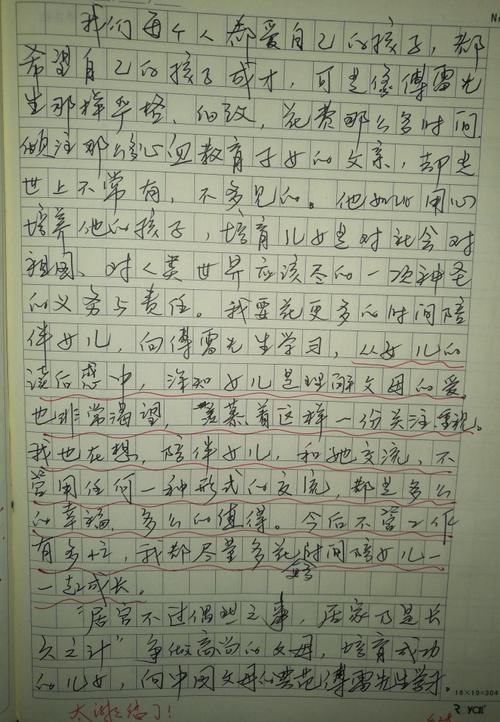 我们每个人都爱自己的孩子，都
希望自己的孩子成才，可是像傅雷先
生那样严格、细致，花费那么多时间
倾注那么多心血教育子女的父亲，却是
世上不常有，不多见的。他如此用心
培养他的孩子，培育儿女是对社会对
祖国、对人类世界应该尽的一次神圣
的义务与责任。我要花更多的时间陪
伴女儿，向傅雷先生学习，从女儿的
读后感中，深知女儿是理解父母的爱，
也非常渴望，羡慕着这样一份关注重视。
我也在想，陪伴女儿，和她交流，不
管用任何一种形式的交流，都是多么
的幸福，多么的值得。今后不管工作
有多忙，我都尽量多花时间陪女儿一
一起成长。
"居官不过偶然之事，居家乃是长
久之计"争做高尚的父母，培育成功
的儿女，向中国父母的典范傅雷先生学习
16×19=304
太激动了！